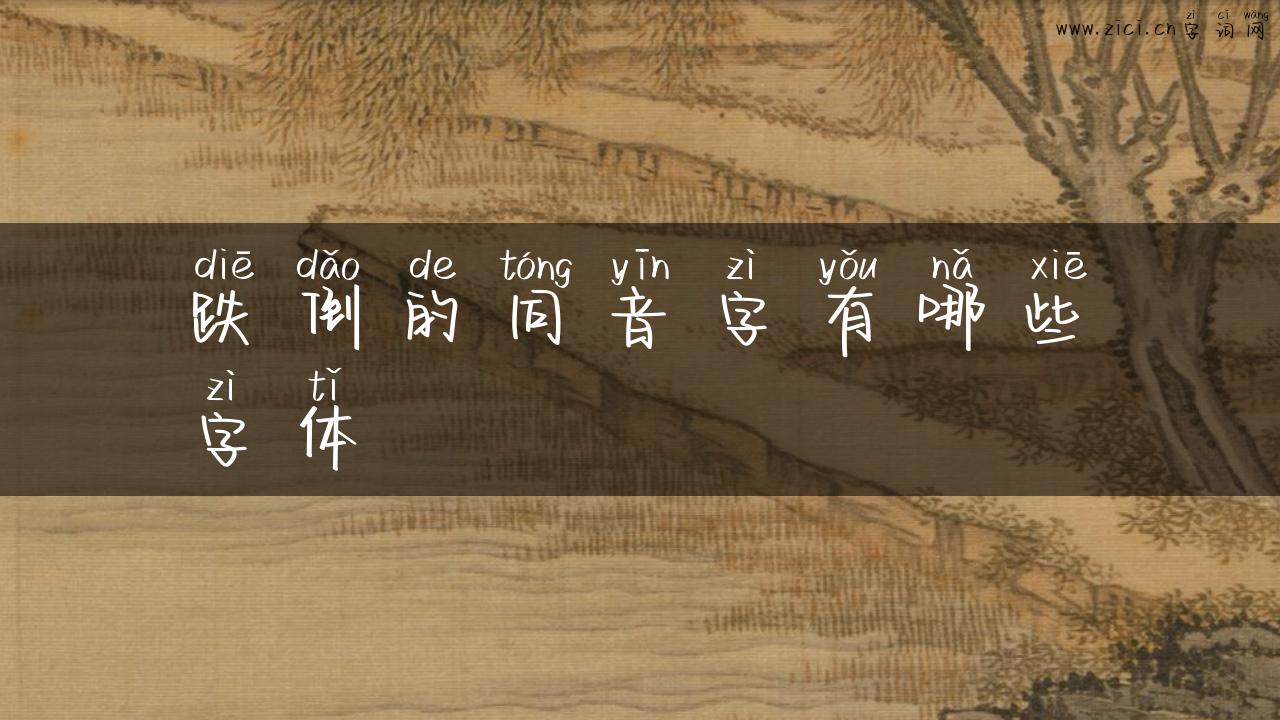 zì cí wǎng
www.zici.cn字词网
diē dǎo de tóng yīn zì yǒu nǎ xiē
跌倒的同音字有哪些
zì tǐ
字体